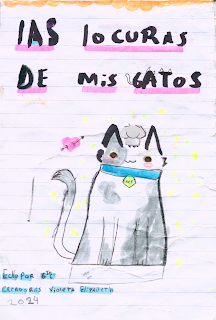 LAS LOCURAS
DE Mis GATOS
EcHo PoR 5°c
CREADORAS VIOLETA ELIZABETH
2024